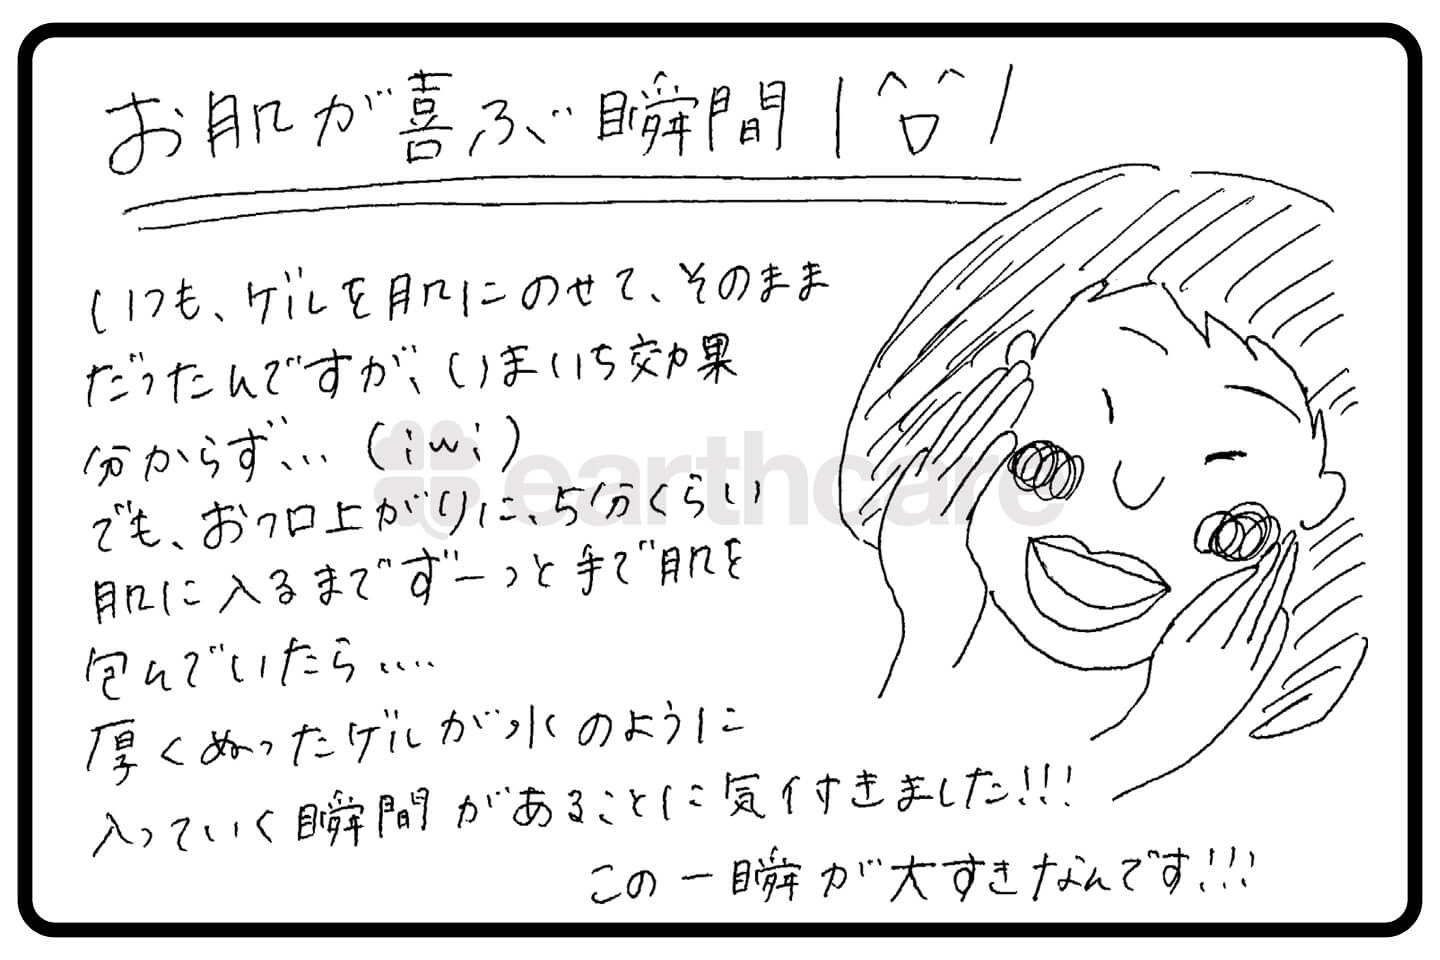 お肌が喜ぶ瞬間 |^ロ^|
いつも、ゲルを肌にのせて、そのまま
だったんですが、いまいち効果
分からず、、、(；ω；)
でも、おフロ上がりに、5分くらい
肌に入るまでずーっと手で肌を
包んでいたら....
厚くぬったゲルが水のように
入っていく瞬間があることに気付きました!!!
この一瞬が大すきなんです!!!
earthcare